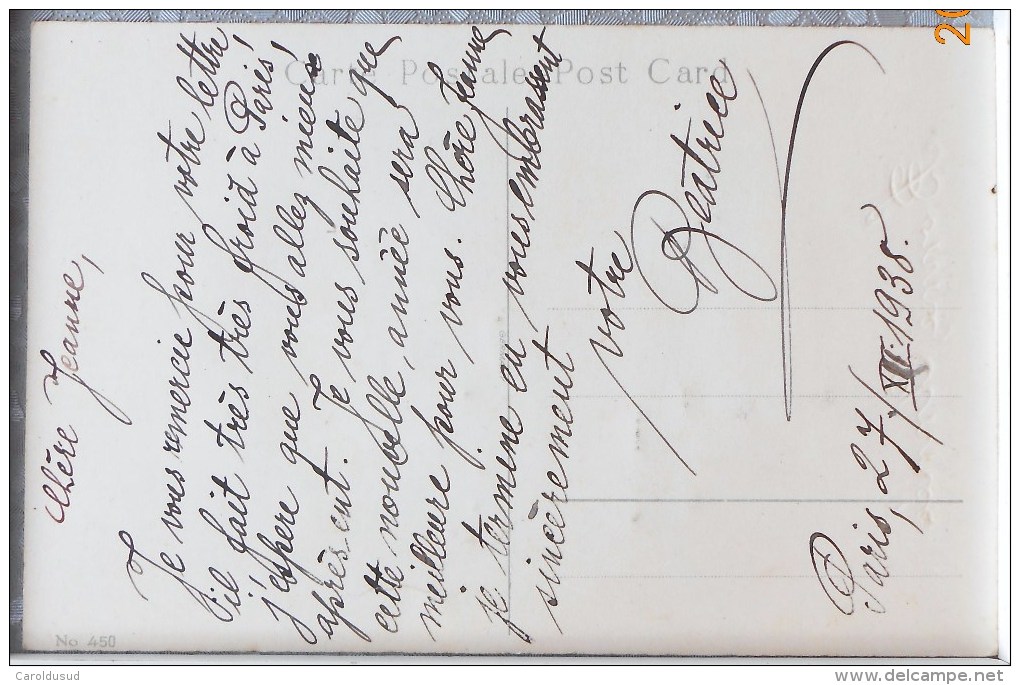 Carte Postale Post Card
Chère Jeanne,
Je vous remercie pour votre lettre
il fait très très froid à Paris!
j'espère que vous allez mieux
aprèsent. Je vous souhaite que
cette nouvelle année sera
meilleure pour vous. Chère Jeanne
je termine en vous embrassent
sincèrement
votre
Beatrice
Paris, 27/XII.1938.
No 450
Caroldusud
delcampe.net